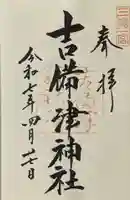 奉拝
吉備津神社
令和七年四月廿七日